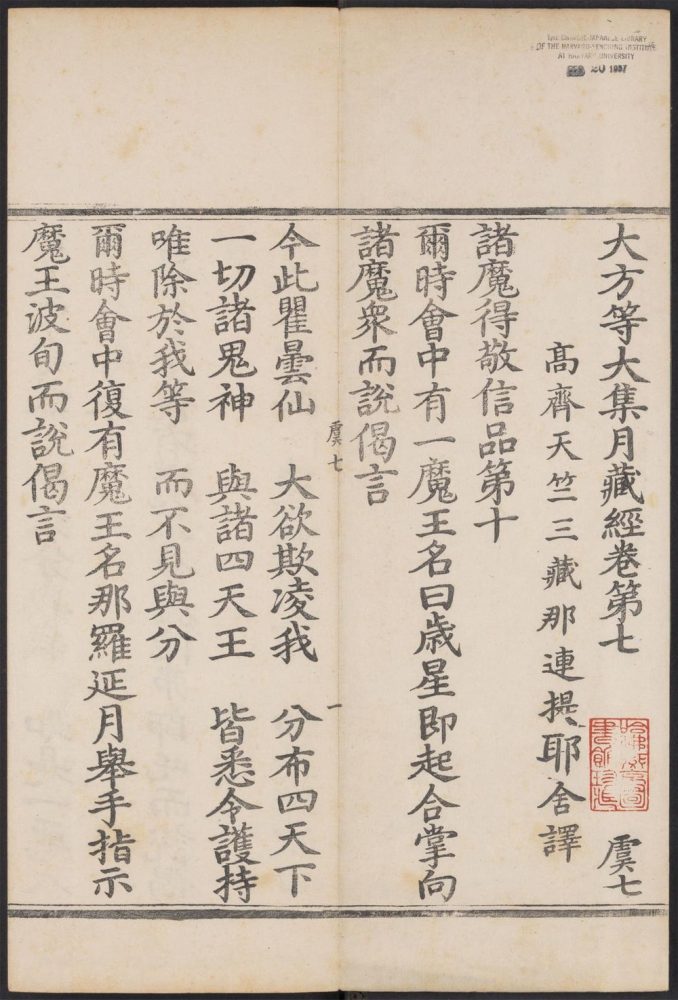 THE CHINESE-JAPANESE LIBRARY
OF THE HARVARD-YENCHING INSTITUTE
AT HARVARD UNIVERSITY
20 1957
大方等大集月藏經卷第七 虞七
髙齊天竺三藏那連提耶舍譯
諸魔得敬信品第十
爾時會中有一魔王名曰歲星即起合掌向
諸魔衆而說偈言
虞七 一
今此瞿曇仙 大欲欺凌我 分布四天下
一切諸鬼神 與諸四天王 皆悉令護持
唯除於我等 而不見與分
爾時會中復有魔王名那羅延月舉手指示
魔王波旬而說偈言